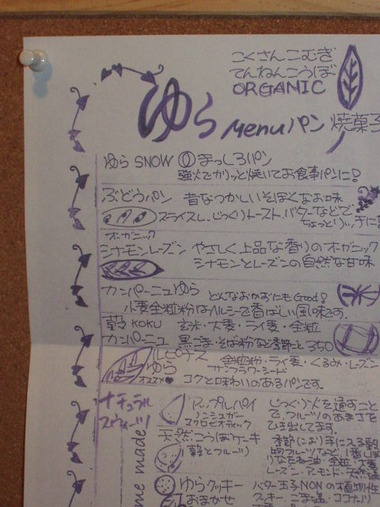 こくさんこむぎ
てんねんこうぼ
ORGANIC
ゆら Menu パン 焼菓子
ゆら SNOW まっしろパン
強火でカリッと焼いてお食事パンに!
ぶどうパン 昔なつかしいそぼくなお味
スライスし、じっくりトースト、バターなどで
ちょっとリッチ
オーガニック
シナモンレーズン やさしく上品な香りのオーガニック
シナモンとレーズンの自然な甘味
カンパーニュゆら どんなおかずにもGood!
小麦全粒粉はヘルシーで香ばしい風味です。
KOKU 玄米・大麦・ライ麦・全粒
カンパーニュ 黒ごま・そば粉など 350
ゆら 全粒粉・ライ麦・くるみ・レーズン
サンフラワーシード
オススメ コクと味わいのあるパンです。
ナチュラル
スウィーツ
アップルパイ じっくり火を通すこと
ノンシュガー で、フルーツのあまさを
マクロビオティック ひき出してます。
天然こうぼケーキ
ゆらクッキー バター玉子NON
おまかせ クッキー ごま
me made